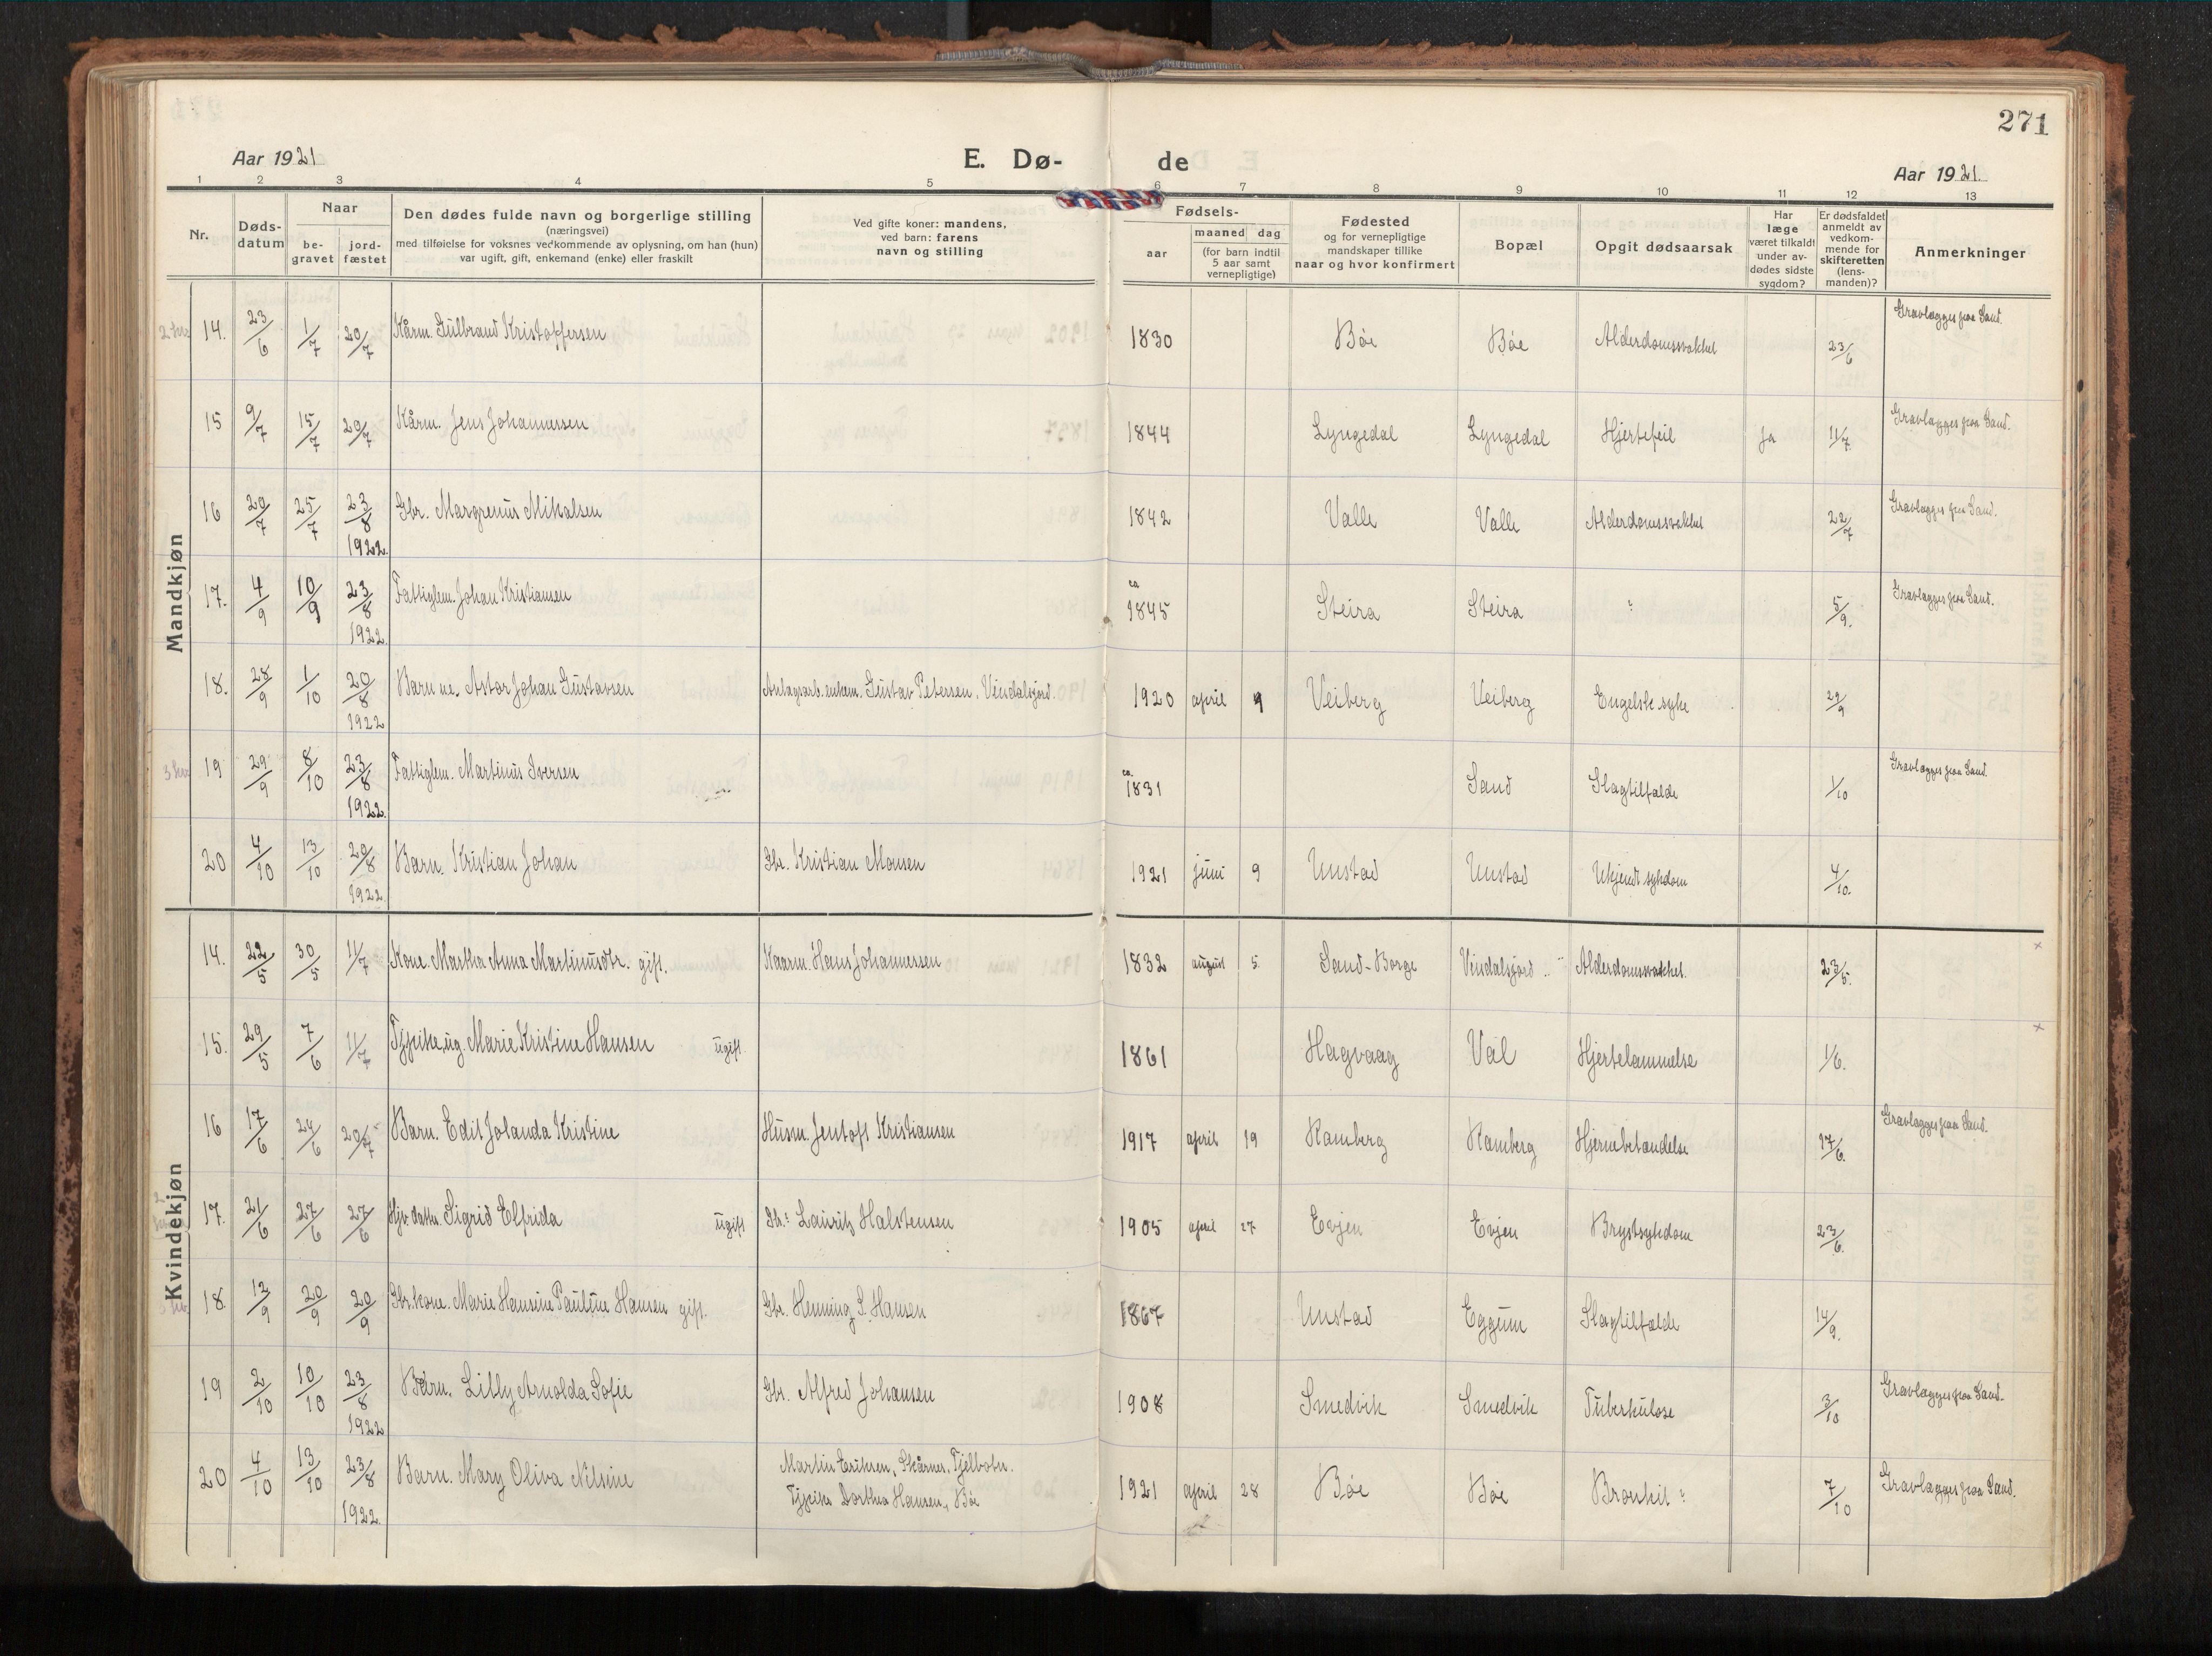 271
Aar 1921
E. Dø-
de
Aar 1921.
1 2 3 4 5 6 7 8 9 10 11 12 13
Nr.
Døds-
datum
Naar
be-
gravet
jord-
fæstet
Den dødes fulde navn og borgerlige stilling
(næringsvei)
med tilføielse for voksnes vedkommende av oplysning, om han (hun)
var ugift, gift, enkemand (enke) eller fraskilt
Ved gifte koner: mandens,
ved barn: farens
navn og stilling
Fødsels-
aar
maaned dag
(for barn indtil
5 aar samt
vernepligtige)
Fødested
og for vernepligtige
mandskaper tillike
naar og hvor konfirmert
Bopæl
Opgit dødsaarsak
Har
læge
været tilkaldt
under av-
dødes sidste
sygdom?
Er dødsfaldet
anmeldt av
vedkom-
mende for
skifteretten
(lens-
manden)?
Anmerkninger
Mandkjøn
14. 23/6 1/7 20/7 Kårm. Gulbrand Kristoffersen 1830 Bøe Bøe Alderdomssvakhet 23/6 Gravlægges paa Sand.
15 9/7 15/7 20/7 Kårm. Jens Johannessen 1844 Lyngedal Lyngedal Hjertefeil Ja 11/7. Gravlægges paa Sand.
16 20/7 25/7 23/8 1922. Gbr. Margrenus Mikalsen 1842 Valle Valle Alderdomssvakhet 22/7 Gravlægges paa Sand.
17. 4/9 10/9 23/8 1922. Fattiglem. Johan Kristiansen ca 1845 Steira Steira " 5/9. Gravlægges paa Sand.
18. 28/9 1/10 20/8 1922 Barn ue. Astor Johan Gustavsen Anlægsarb. enkem. Gustav Petersen, Vindalsfjord. 1920 april 9 Veiberg Veiberg Engelsk syke 29/9
19 29/9 8/10 23/8 1922. Fattiglem. Martinus Iversen ca. 1831 Sand Slagtilfælde 1/10 Gravlægges paa Sand.
20 4/10 13/10 20/8 1922. Barn. Kristian Johan Gbr. Kristian Monsen 1921 juni 9 Unstad Unstad Ukjendt sykdom 4/10.
Kvindekjøn
14. 22/5 30/5 11/7 Kone. Martha Anna Martinusdtr. gift. Kaarm. Hans Johannessen 1832 august 5. Sand-Borge Vindalsfjord Alderdomssvakhet. 23/5. x
15. 29/5 7/6 11/7 Tjpike, ug. Marie Kristine Hansen ugift. 1861 Hagvaag Val Hjertelammelse 1/6. x
16 17/6 24/6 20/7 Barn. Edit Jolanda Kristine Husm. Jentoft Kristiansen 1917 april 19 Ramberg Ramberg Hjernebetændelse 17/6. Gravlægges paa Sand.
17. 21/6 27/6 27/6 Hjv. datter. Sigrid Elfrida ugift Gbr. Lauritz Halstensen 1905 april 27 Evjen Evjen Brystsykdom 23/6.
18. 12/9 20/9 20/9 Gbr. kone. Marie Hansine Pauline Hansen gift. Gbr. Henning S. Hansen 1867 Unstad Eggum Slagtilfælde 14/9.
19 2/10 10/10 23/8 1922 Barn. Lilly Arnolda Sofie Gbr. Alfred Johansen 1908 Smedvik Smedvik Tuberkulose 3/10 Gravlægges paa Sand.
20 4/10 13/10 23/8 1922. Barn. Mary Oliva Nilsine Martin Eriksen, Skårnes, Tjeldsund.
Tjpike Dorthea Hansen, Bøe 1921 april 28 Bøe Bøe Bronkit 7/10 Gravlægges paa Sand.